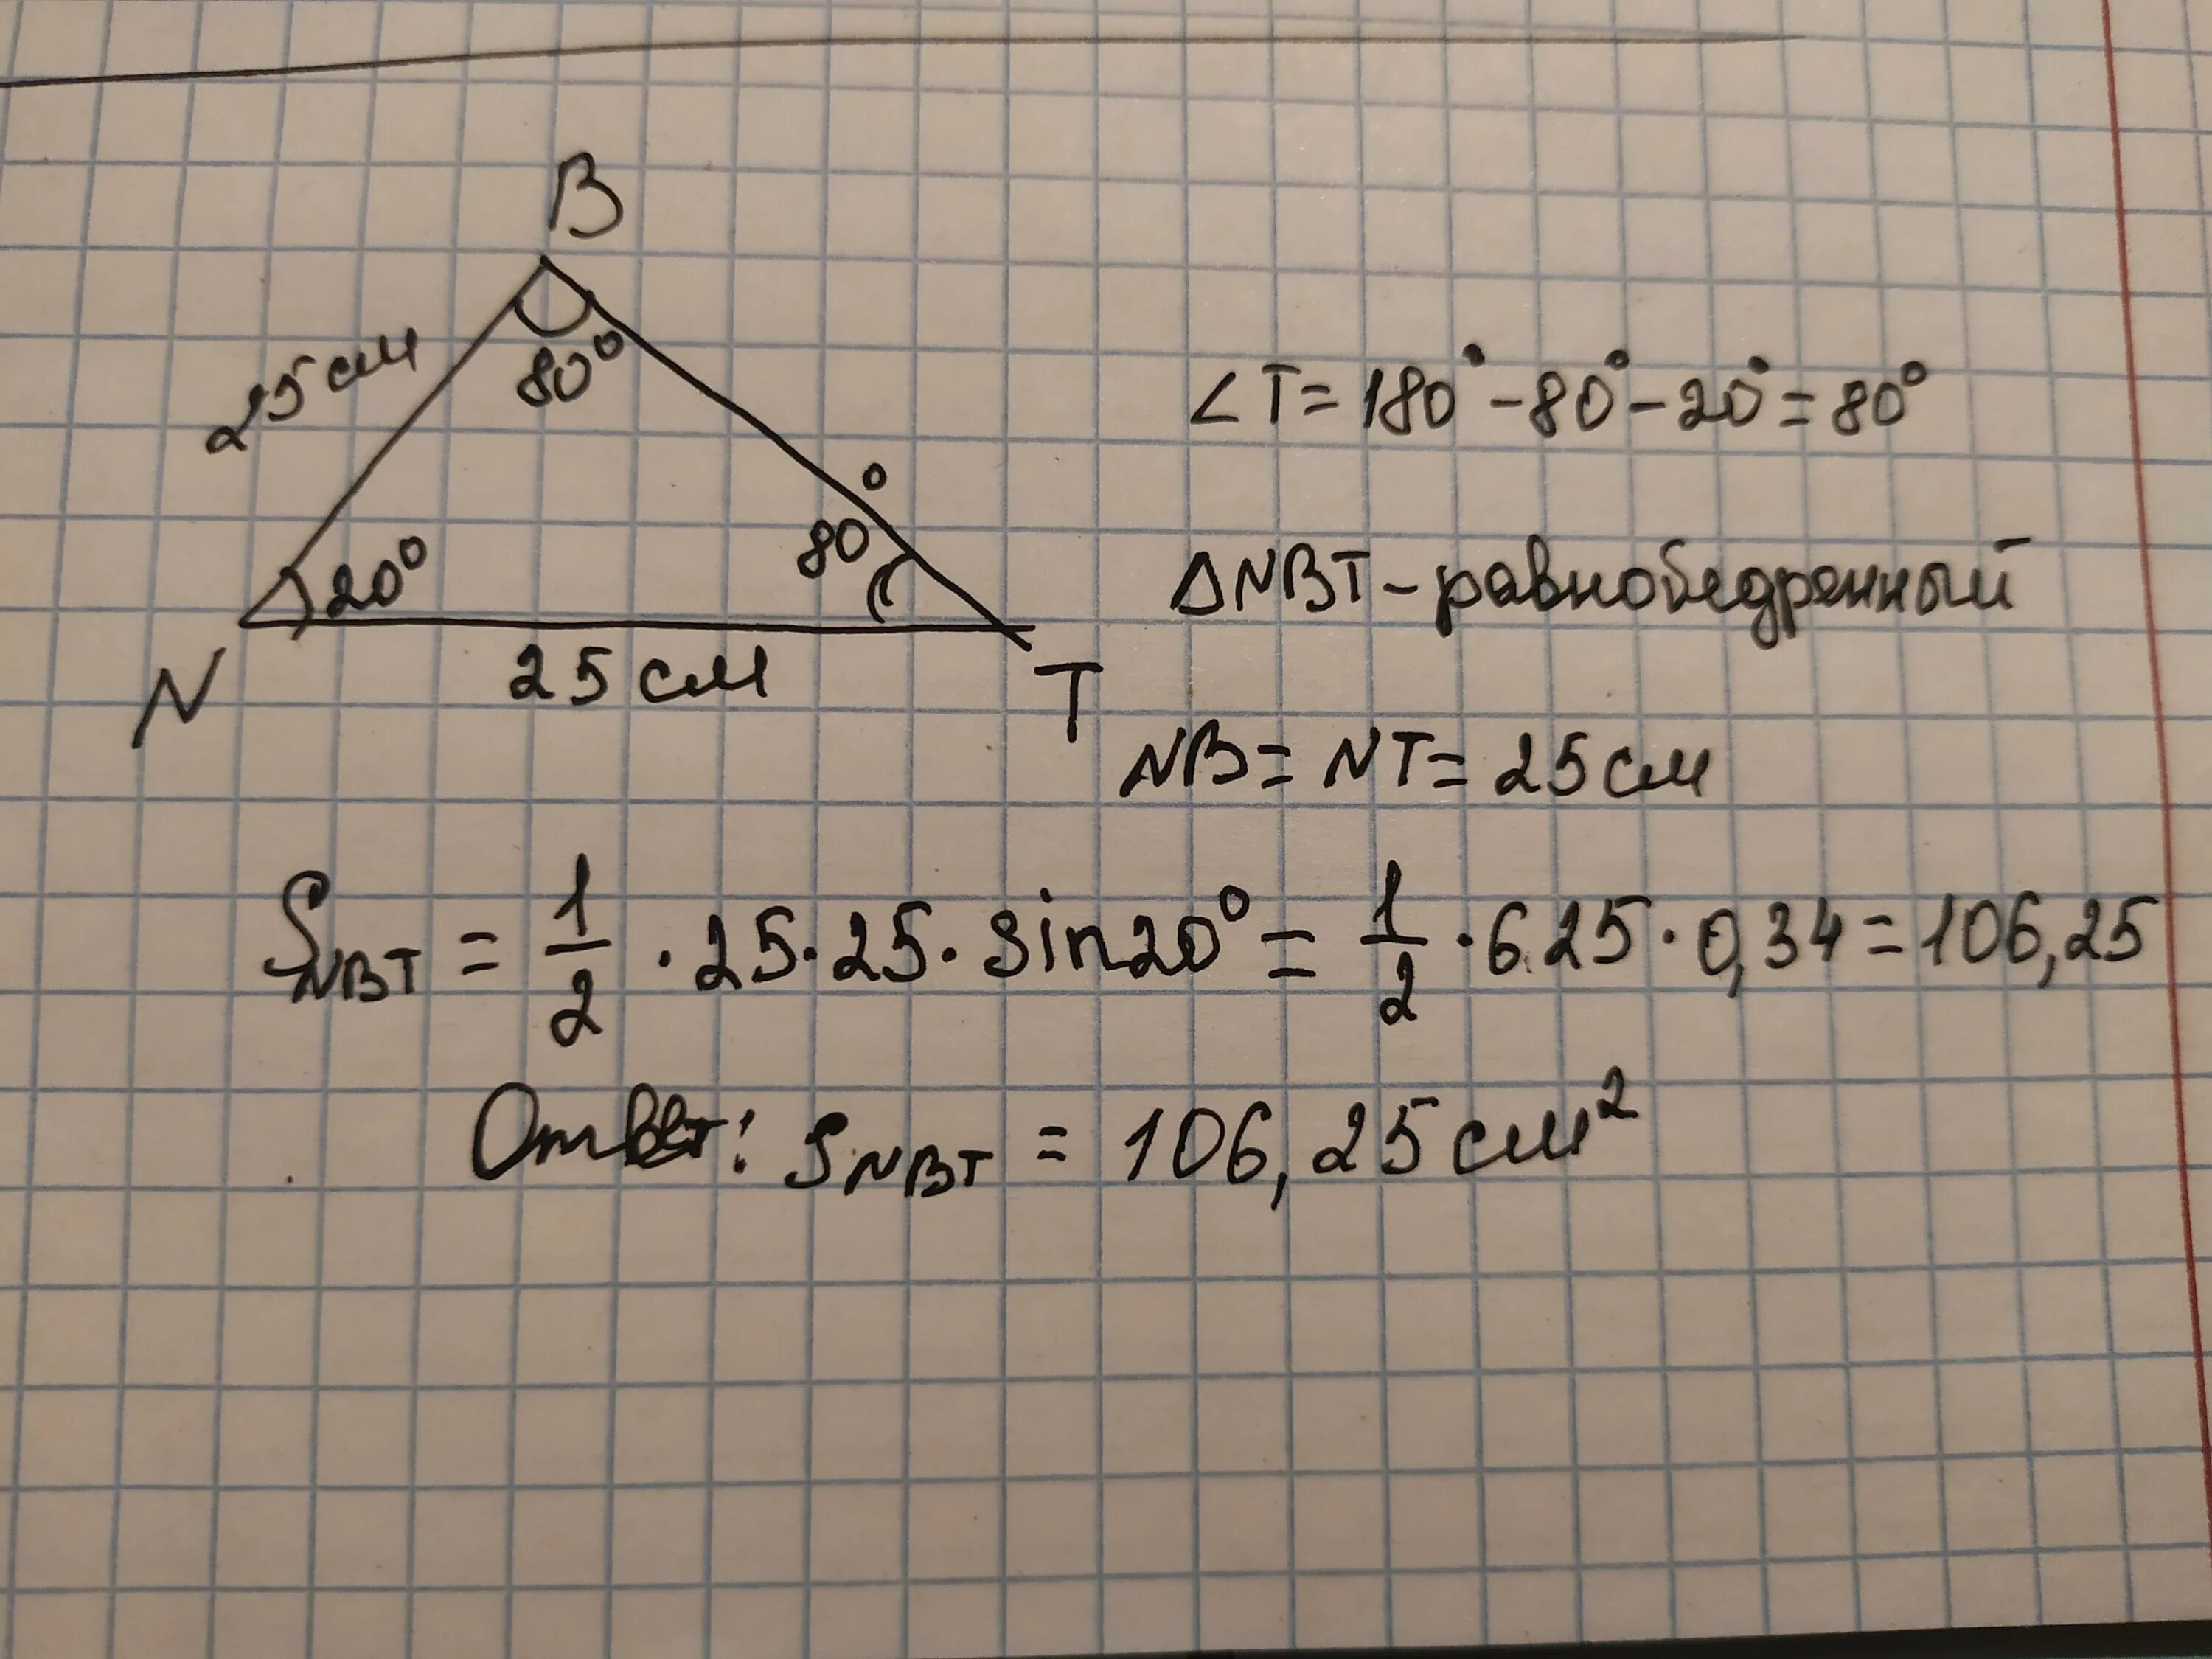 B
25 см
80°
∠T = 180° - 80° - 20° = 80°
80°
20°
ΔNBT - равнобедренный
25 см
N
T
NB = NT = 25 см
S_NBT = 1/2 · 25 · 25 · sin20° = 1/2 · 625 · 0,34 = 106,25
Ответ: S_NBT = 106,25 см²